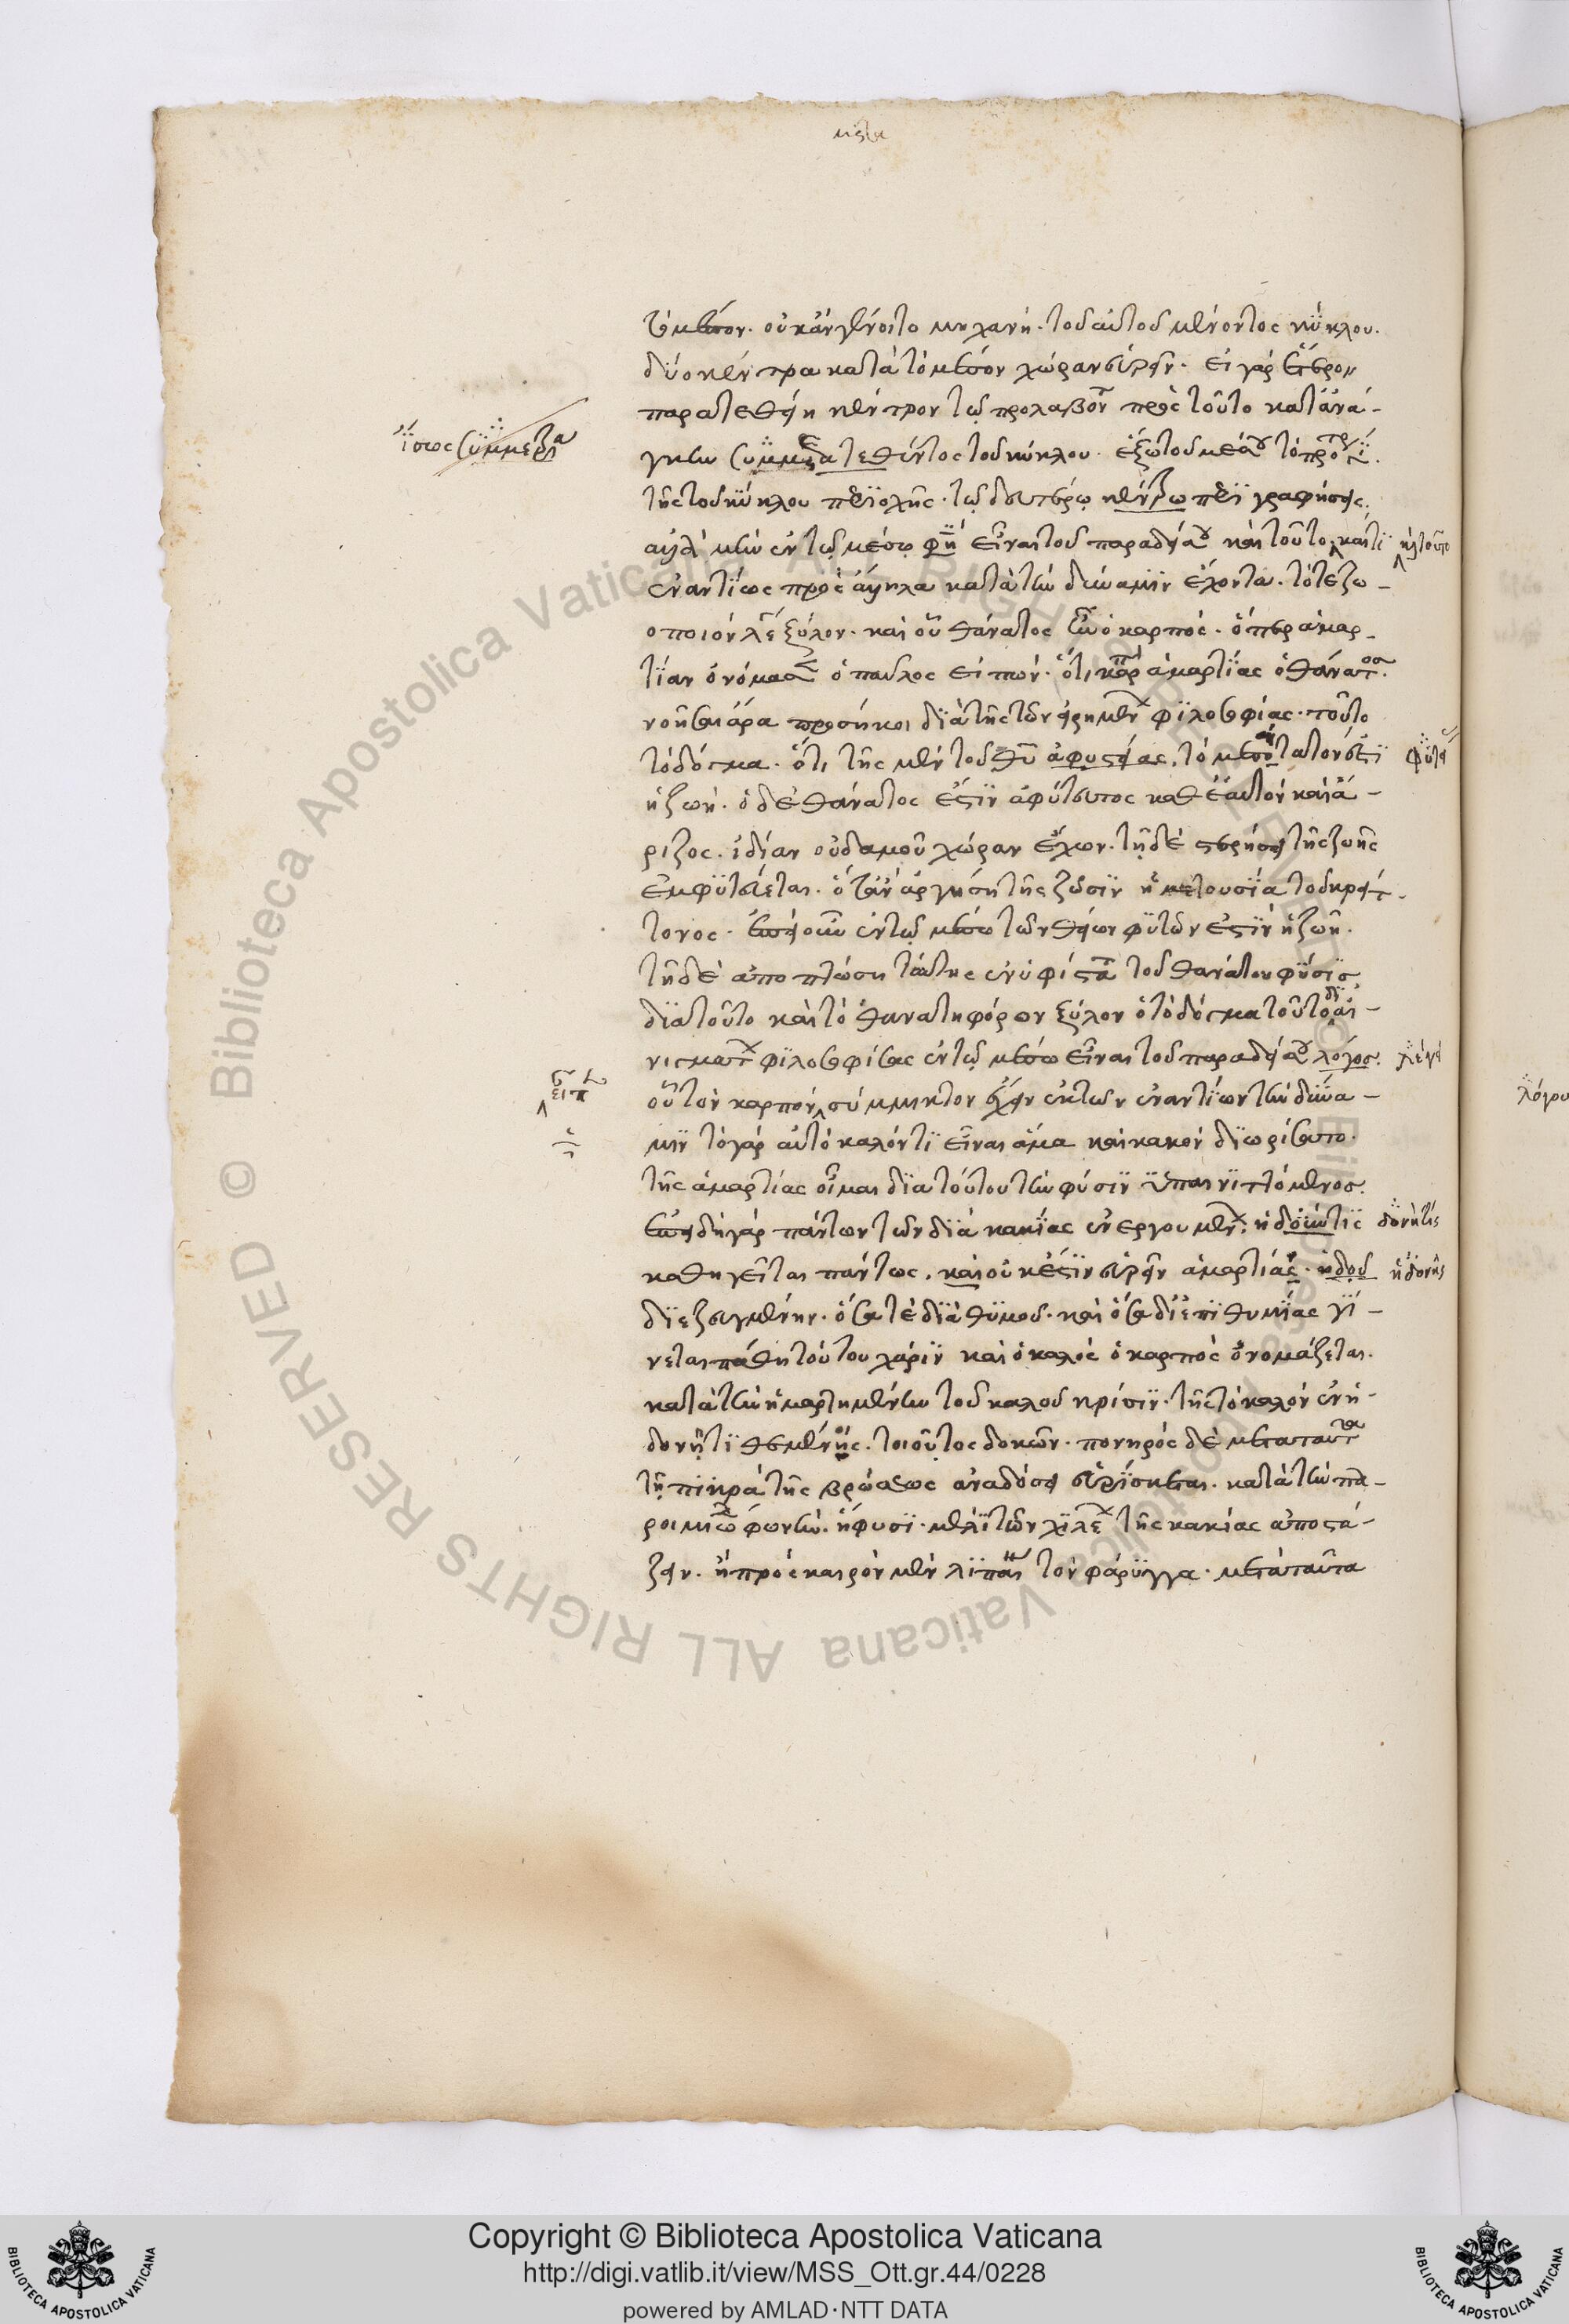 τὸ μέσον. οὐκ ἂν γένοιτο μηχανή. τοῦ αὐτοῦ μένοντος κύκλου.
δύο κέντρα κατὰ τὸ μέσον χώραν εὑρεῖν. εἰ γὰρ ἕτερον
παρατεθείη κέντρον τῷ προλαβόντι πρὸς τοῦτο κατ' ἀνά-
ἴσως συμμετα
γκην συμμετατεθέντος τοῦ κύκλου. ἔξω τοῦ μέσου τὸ πρότερον.
τῆς τοῦ κύκλου περιοχῆς. τῷ δευτέρῳ κέντρῳ περιγραφήσης.
ἀλλὰ μὴν ἐν τῷ μέσῳ φησὶ εἶναι τοῦ παραδείσου καὶ τοῦτο καὶ τὶ
κἀκεῖνο
ἐναντίως πρὸς ἄλληλα κατὰ τὴν δύναμιν ἔχοντα. τό τε ζω-
οποιὸν λέγω ξύλον. καὶ οὗ θάνατος ἦν ὁ καρπός. ὅπερ ἁμαρ-
τίαν ὀνόμασεν ὁ παῦλος εἰπών. ὅτι καρπὸς ἁμαρτίας ὁ θάνατος.
νοῆσαι ἄρα προσήκει διὰ τῆς τῶν εἰρημένων φιλοσοφίας. τοῦτο
τὸ δόγμα. ὅτι τῆς μὲν τοῦ θεοῦ ἀφυτείας. τὸ μεσαίτατόν ἐστι
φυτεί
ἡ ζωή. ὁ δὲ θάνατος ἐστὶν ἀφύτευτος καθ' ἑαυτὸν καὶ ἄ-
ριζος. ἰδίαν οὐδαμοῦ χώραν ἔχων. τῇ δὲ στερήσει τῆς ζωῆς
ἐμφυτεύεται. ὅταν ἀργήση τῆς ζῶσιν ἡ μετουσία τοῦ κρείτ-
τονος. ἐπεὶ οὖν ἐν τῷ μέσῳ τῶν θείων φυτῶν ἐστὶν ἡ ζωή.
τῇ δὲ ἀποπτώσει ταύτης ἐνυφίσταται τοῦ θανάτου φύσις
διατοῦτο καὶ τὸ θανατηφόρον ξύλον ὁ τὸ δόγμα τοῦτο δι' αἰ-
νιγμάτων φιλοσοφήσας ἐν τῷ μέσῳ εἶναι τοῦ παραδείσου λόγος.
λέγει
οὗ τὸν καρπὸν σύμμικτον ἔχειν ἐκ τῶν ἐναντίων τὴν δύνα-
εἶπε
μιν τὸ γὰρ αὐτὸ καλόν τὶ εἶναι ἅμα καὶ κακὸν διωρίσατο.
τῆς ἁμαρτίας οἶμαι διατούτου τὴν φύσιν ὑπαινιττόμενος.
ἐπειδὴ γὰρ πάντων τῶν διὰ κακίας ἐνεργουμένων. ἡδονή τις
δονή τις
καθηγεῖται πάντως. καὶ οὐκ ἔστιν εὑρεῖν ἁμαρτίαν. ἡδοῦ
ἡδονῆς
διεζευγμένην. ὅσα τὲ διὰ θυμοῦ. καὶ ὅσα δι' ἐπιθυμίας γί-
νεται πάθη τούτου χάριν καὶ ὁ καλὸς ὁ καρπὸς ὀνομάζεται.
κατὰ τὴν ἡμαρτημένην τοῦ καλοῦ κρίσιν. τῆς τὸ καλὸν ἐν ἡ-
δονῇ τιθεμένης. τοιοῦτος δοκῶν. πονηρὸς δὲ μετα ταῦτα
τῇ πικρᾷ τῆς βρώσεως ἀναδόσει εὑρίσκεται. κατὰ τὴν πα-
ροιμιώδη φωνήν. ἥ φησι. μέλι τῶν χειλέων τῆς κακίας ἀποστά-
ζειν. ἣ πρὸς καιρὸν μὲν λιπαίνει τὸν φάρυγγα. μετὰ ταῦτα
λόγου
Copyright © Biblioteca Apostolica Vaticana
http://digi.vatlib.it/view/MSS_Ott.gr.44/0228
powered by AMLAD·NTT DATA
BIBLIOTECA APOSTOLICA VATICANA
BIBLIOTECA APOSTOLICA VATICANA
© Biblioteca Apostolica Vaticana ALL RIGHTS RESERVED